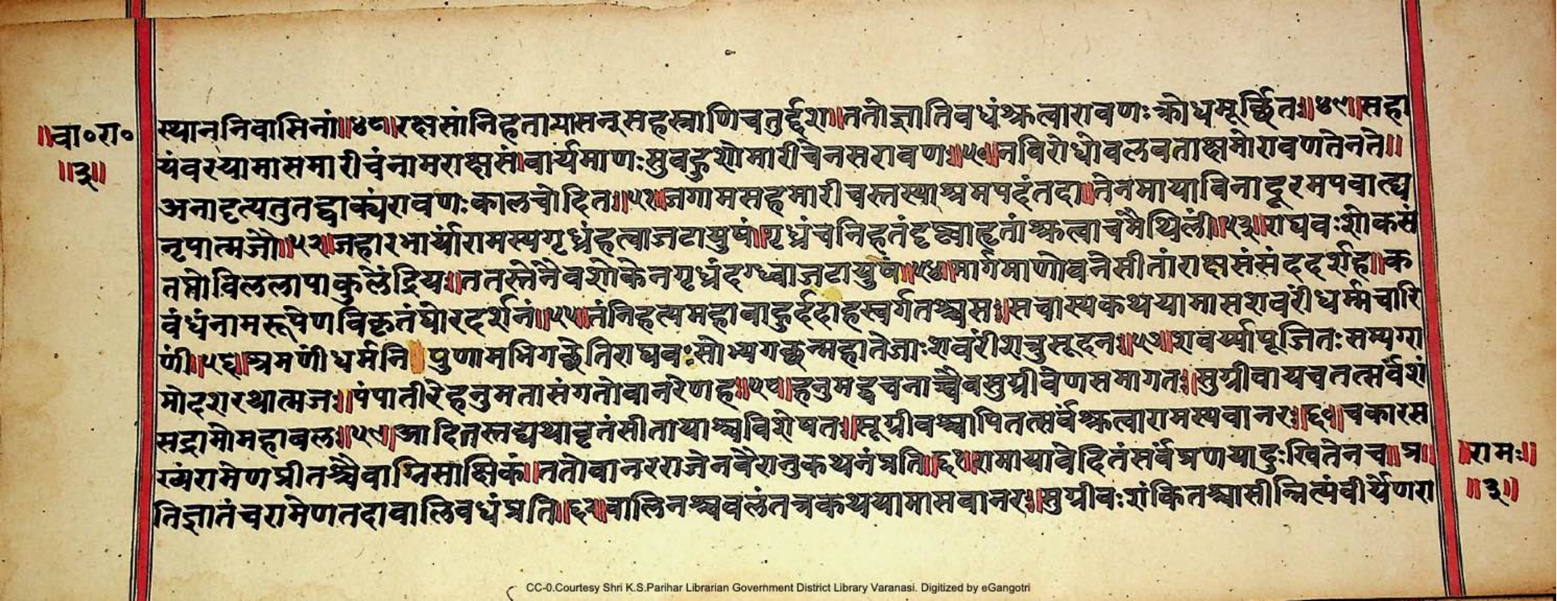 ॥वा॰रा॰
॥३॥
स्थाननिवासिनां॥४८॥रक्षसांनिहतायासन्सहस्त्राणिचतुर्द्दश॥ततोज्ञातिवधंश्रुत्वारावणःक्रोधमूर्च्छितः॥४९॥सहा
यंवरयामासमारीचंनामराक्षसं॥वार्यमाणःसुवहुशोमारीचेनसरावणः॥५०॥नविरोधोवलवताक्षमोरावणतेनते॥
अनादृत्यतुतद्वाक्यंरावणःकालचोदितः॥५१॥जगामसहमारीचस्तस्याश्रमपदंतदा॥तेनमायाविनादूरमपवाह्य
नृपात्मजौ॥५२॥जहारभार्यांरामस्यगृध्रंहत्वाजटायुषं॥गृध्रंचनिहतंदृष्ट्वाहृतांश्रुत्वाचमैथिलीं॥५३॥राघवःशोकसं
तप्तोविललापाकुलेंद्रियः॥ततस्तेनैवशोकेनगृध्रंदग्ध्वाजटायुषं॥५४॥मार्गमाणोवनेसीतांराक्षसंसंददर्शह॥क
वंधंनामरूपेणविकृतंघोरदर्शनं॥५५॥तंनिहत्यमहावाहुर्ददाहस्वर्गतश्चसः॥सचास्यकथयामासशवरींधर्म्मचारि
णीं॥५६॥श्रमणींधर्मनि पुणामभिगच्छेतिराघवः॥सोभ्यगच्छन्महातेजाःशवरींशत्रुसूदनः॥५७॥शवर्य्यापूजितःसम्यग्रा
मोदशरथात्मजः॥पंपातीरेहनुमतासंगतोवानरेणह॥५८॥हनुमद्वचनाच्चैवसुग्रीवेणसमागतः॥सुग्रीवायचतत्सर्वंशं
सद्रामोमहावलः॥५९॥आदितस्तद्यथावृतंसीतायाश्चविशेषतः॥सूग्रीवश्चापितत्सर्वंश्रुत्वारामस्यवानरः॥६०॥चकारस
ख्यंरामेणप्रीतश्चैवाग्निसाक्षिकं॥ततोवानरराजेनवैरानुकथनंप्रति॥६१॥रामायावेदितंसर्वंप्रणयादुःखितेनच॥प्र
तिज्ञातंचरामेणतदावालिवधंप्रति॥६२॥वालिनश्चवलंतत्रकथयामासवानरः॥सुग्रीवःशंकितश्चासीन्नित्यंवीर्येणरा
रामः॥
॥३॥
CC-0.Courtesy Shri K.S.Parihar Librarian Government District Library Varanasi. Digitized by eGangotri